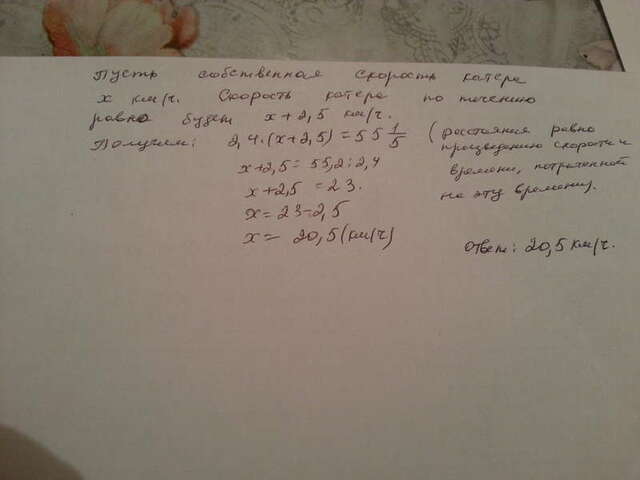 Пусть собственная скорость катера
x км/ч. Скорость катера по течению
равно будет x + 2,5 км/ч.
Получим: 2,4·(x+2,5) = 55 1/5 (расстояния равно
произведению скорости и
x+2,5 = 55,2 : 2,4 времени, потраченной
x+2,5 = 23. на эту времени).
x = 23-2,5
x = 20,5 (км/ч)
Ответ: 20,5 км/ч.